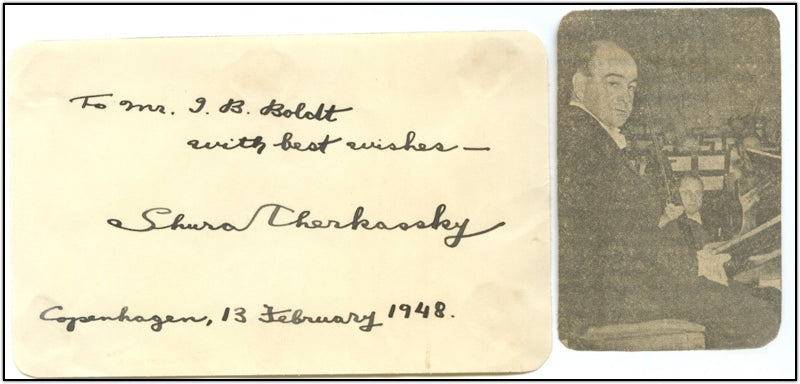 To Mr. I. B. Boldt
with best wishes —
Shura Cherkassky
Copenhagen, 13 February 1948.